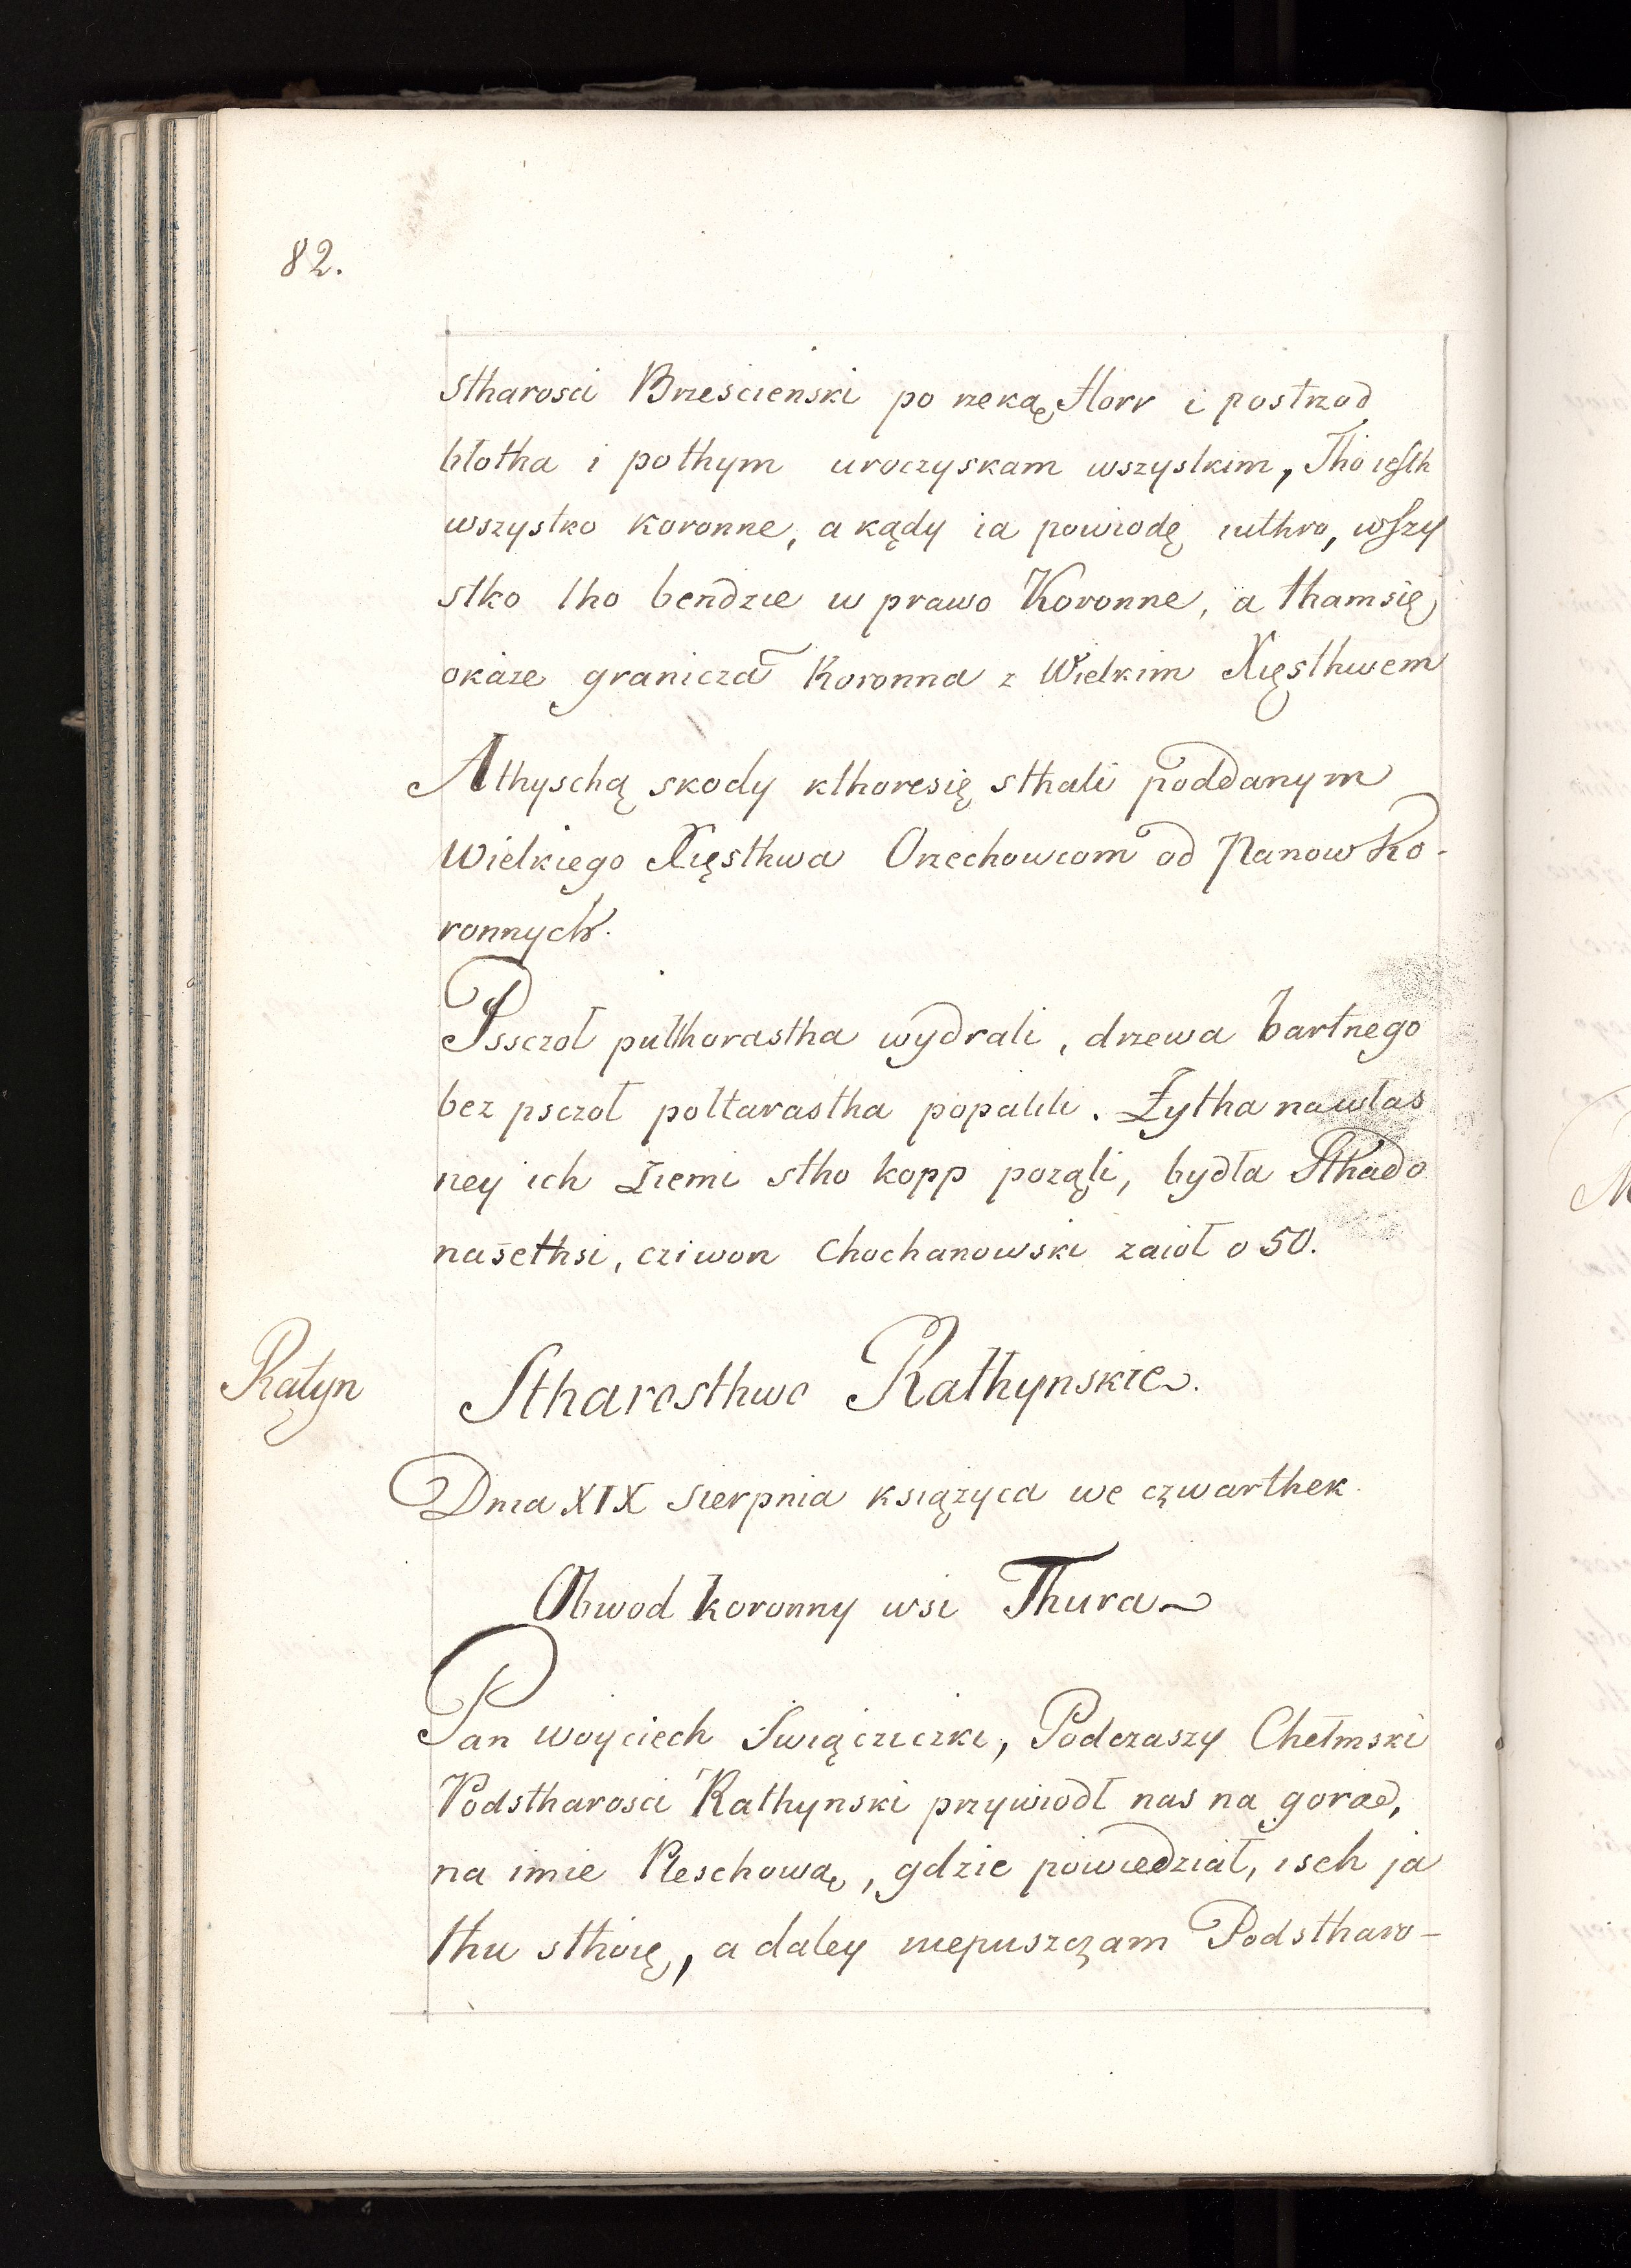 82.
stharosci Brzescienski po rzekaę Horr i postrzod
błotha i pothym uroczyskam wszystkim, Tho iesth
wszystko koronne, a kądy ia powiodę iuthro, wszy
stko tho bendzie w prawo Koronne, a tham się
okaze granicza Koronna z Wielkim Xięsthwem
A thyschą skody kthore się sthali poddanym
Wielkiego Xięsthwa Orzechowcom od Panow Ko-
ronnych.
Psszoł pulthorastha wydrali, drzewa bartnego
bez psczoł połtarastha popalili. Żytha na włas
ney ich Ziemi stho kopp pozęli, bydła Sthado
naszethsi, cziwon Chochanowski zaioł o 50.
Ratyn
Stharosthwo Rathynskie.
Dnia XIX Sierpnia książyca we czwarthek.
Obwod koronny wsi Thura
Pan Woyciech Swiącziczki, Podczaszy Chełmski
Podstharosci Rathynski przywiodł nas na goraę,
na imie Pleschowaę, gdzie powiedział, isch ja
thu sthoię, a daley niepuszczam Podstharo-